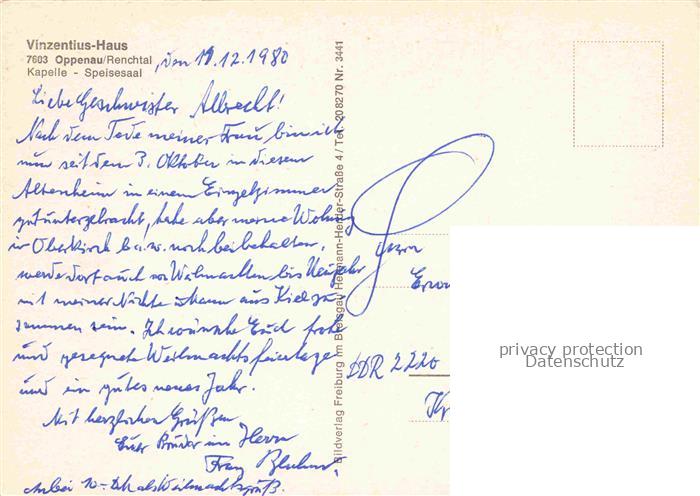 Vinzentius-Haus
7603 Oppenau/Renchtal, den 11.12.1980
Kapelle - Speisesaal
Liebe Geschwister Albrecht!
Nach dem Tode meiner Frau, bin ich
nun seit den 3. Oktober in diesem
Altersheim in einem Einzelzimmer
gut untergebracht, habe aber meine Wohnung
in Oberkirch b.a.w. noch beibehalten,
werde dort auch von Weihnachten bis Neujahr
mit meiner Nichte aus Kiel zu
sammen sein. Ich wünsche Euch frohe
und gesegnete Weihnachtsfeiertage
und ein gutes neues Jahr.
Mit herzlichen Grüßen
Euer Bruder im Herrn
Franz
Anbei 10.- DM als Weihnachtsgruß.
Bildverlag Freiburg im Breisgau Hermann-Herder-Straße 4 / Tel. 208270 Nr. 3441
Herrn
DDR 2220
privacy protection
Datenschutz